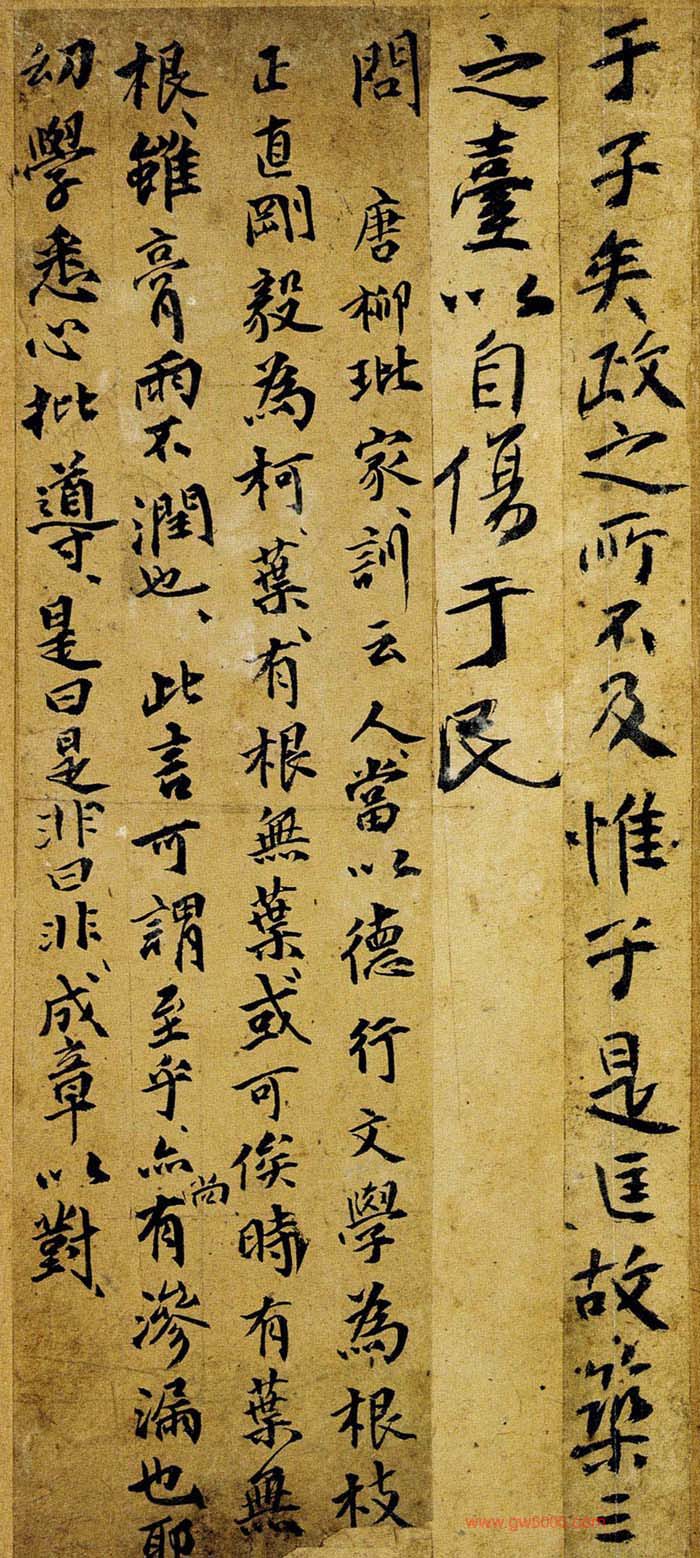 于子矣政之所不及惟于是匡故築三
之臺以自傷于民
問　唐柳玭家訓云人當以德行文學為根枝
正直剛毅為柯葉有根無葉或可俟時有葉無
根雖膏雨不潤也此言可謂至乎亦尚有滲漏也耶
幼學悉心批導是曰是非曰非成章以對
www.gw5000.com